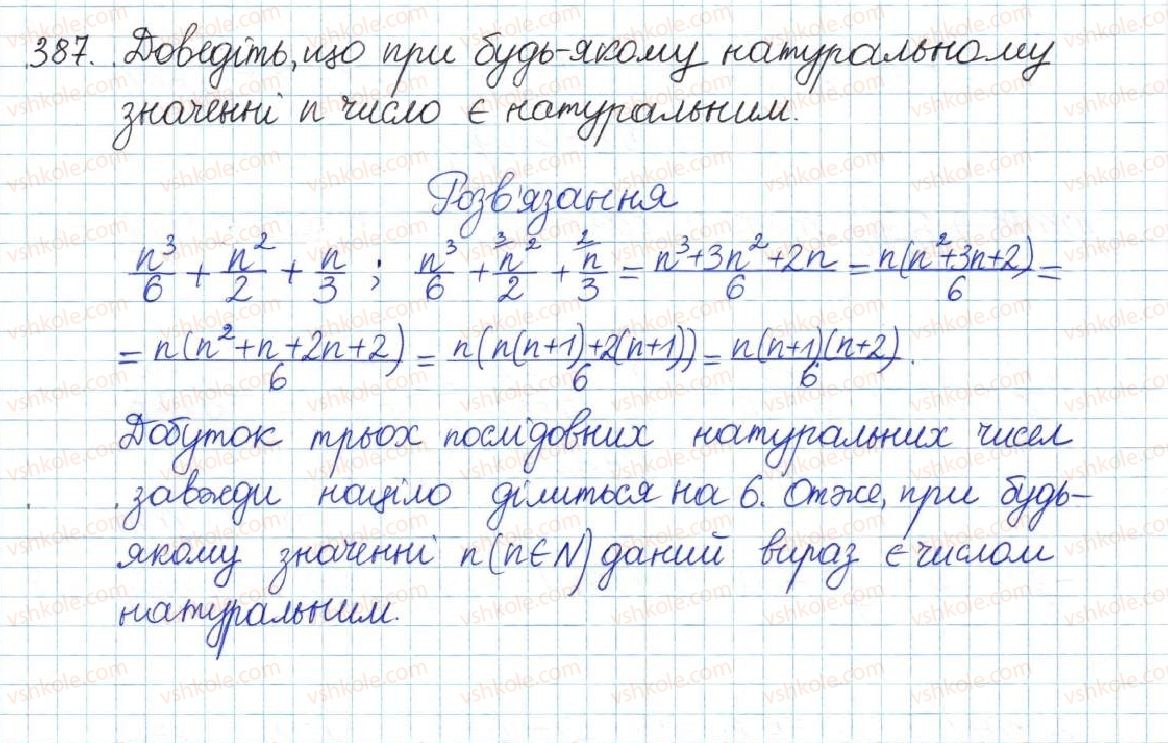 387. Доведіть, що при будь-якому натуральному
значенні n число є натуральним.
Розв'язання
n³/6 + n²/2 + n/3 ; n³/6 + ³n²/2 + ²n/3 = (n³+3n²+2n)/6 = n(n²+3n+2)/6 =
= n(n²+n+2n+2)/6 = n(n(n+1)+2(n+1))/6 = n(n+1)(n+2)/6 .
Добуток трьох послідовних натуральних чисел
завжди націло ділиться на 6. Отже, при будь-
якому значенні n (n∈N) даний вираз є числом
натуральним.